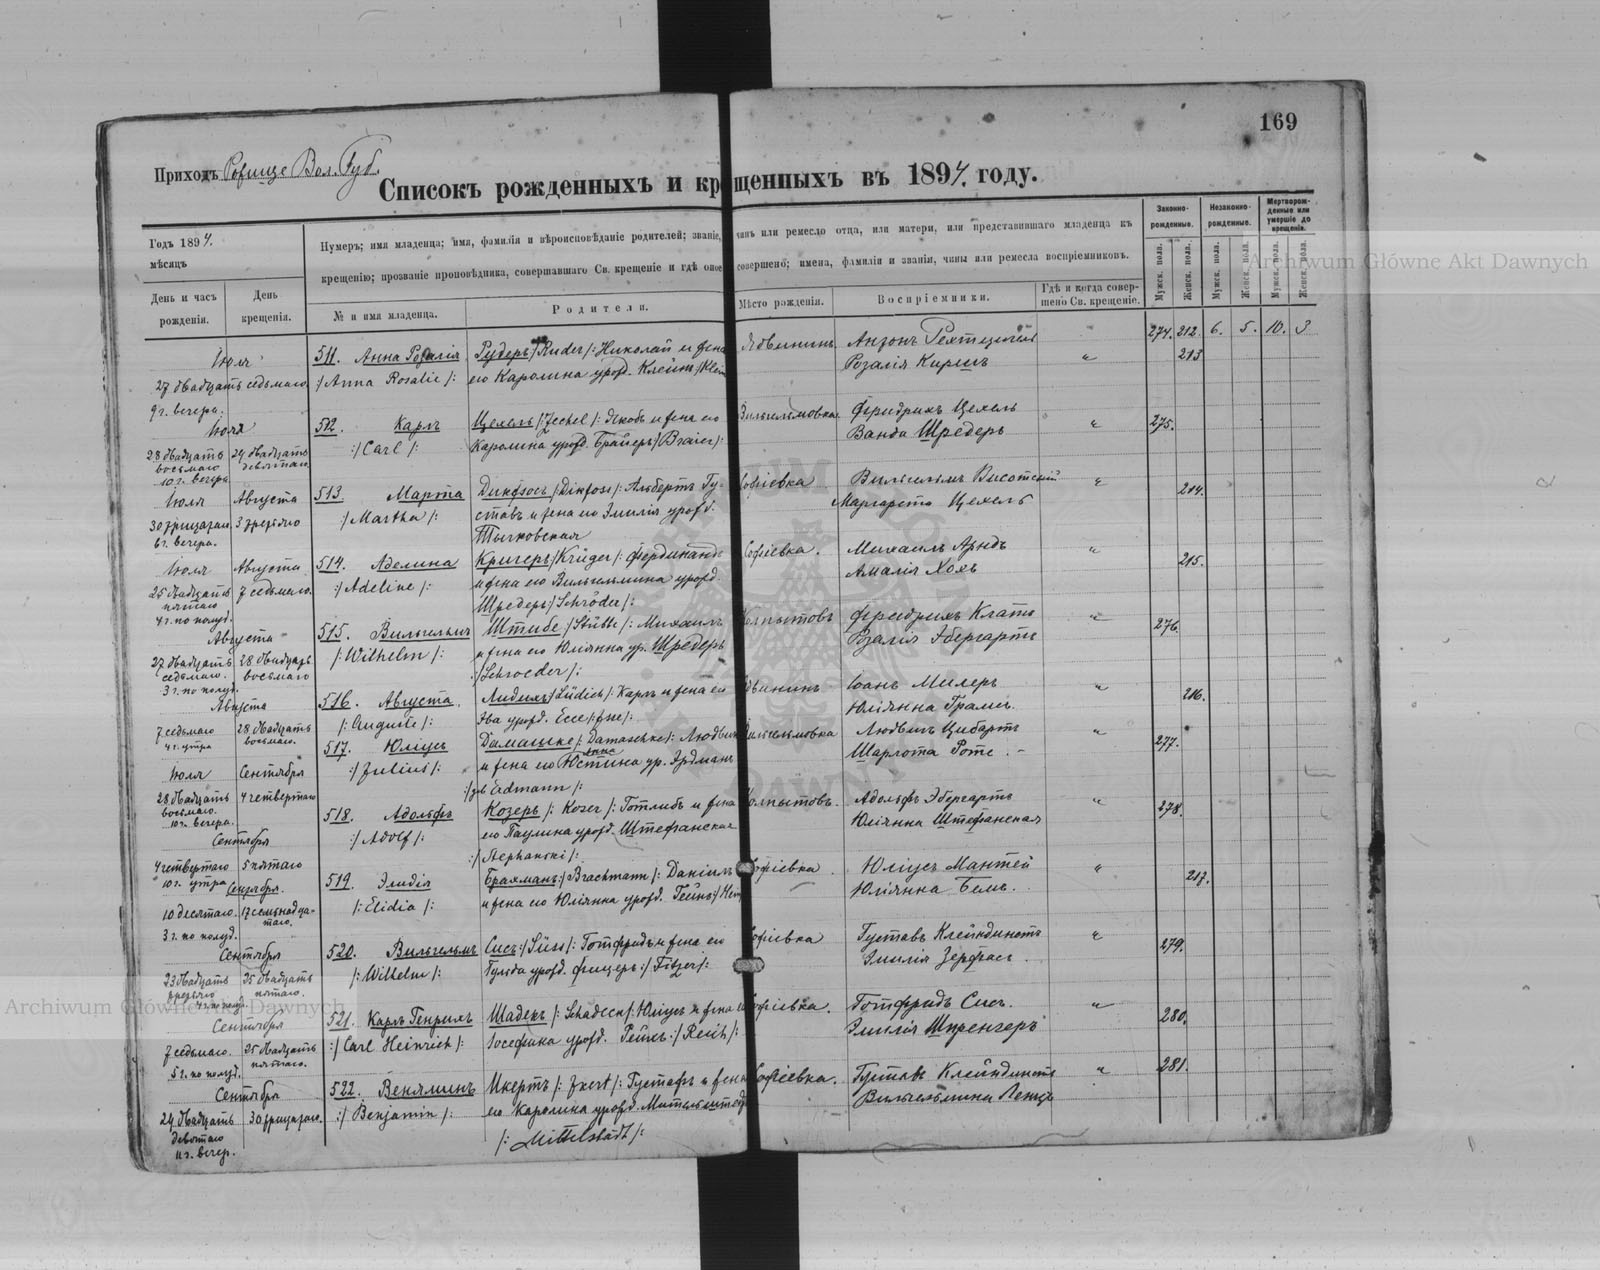 169
Приходъ Рожище Вол. Губ.
Списокъ рожденныхъ и крещенныхъ въ 1894. году.
Годъ 1894.
мѣсяцъ
День и часъ рожденія.
День крещенія.
Нумеръ; имя младенца; имя, фамилія и вѣроисповѣданіе родителей; званіе, чинъ или ремесло отца, или матери, или представившаго младенца къ
крещенію; прозваніе проповѣдника, совершавшаго Св. крещеніе и гдѣ оное совершено; имена, фамиліи и званія, чины или ремесла воспріемниковъ.
№ и имя младенца.
Родители.
Мѣсто рожденія.
Воспріемники.
Гдѣ и когда совершено Св. крещеніе.
Законно-рожденные.
Незаконно-рожденные.
Мертворожденные или умершіе до крещенія.
Мужск. пола.
Женск. пола.
Мужск. пола.
Женск. пола.
Мужск. пола.
Женск. пола.
274. 212. 6. 5. 10. 3
Іюля
27 двадцать седьмаго
9 г. вечера.
511. Анна Розалія
:/Anna Rosalie/:
Рудеръ/Ruder/: Николай и жена
его Каролина урожд. Клейнъ
Ядвининъ
Антонъ
Розалія Киршъ
"
213
Іюля
28 двадцать восьмаго 10 г. вечера
29 двадцать девятаго
512. Карлъ
:/Carl/:
Цехель/:Zechel/: Якобъ и жена его
Каролина урожд. Брайеръ/Braier/:
Вильгельмовка
Фридрихъ Цехель
Ванда Шредеръ
"
275.
Іюля
30 тридцатаго
6 г. вечера.
Августа
3 третьяго
513. Марта
:/Martha/:
Альбертъ Гу-
ставъ и жена его Эмилія урожд.
Софіевка
Вильгельмъ Висотскій
Маргарета Цехель
"
214.
Іюля
25 двадцать пятаго
4 г. по полуд.
Августа
7 седьмаго.
514. Аделина
:/Adeline/:
Кригеръ/Krüger/: Фердинандъ
и жена его Вильгельмина урожд.
Шредеръ/Schröder/:
Софіевка.
Михаилъ Арндъ
Амалія
"
215.
Августа
27 двадцать седьмаго.
3 г. по полуд.
28 двадцать восьмаго
515. Вильгельмъ
/:Wilhelm/:
Штибе:/Stübbe/: Михаилъ
и жена его Юліянна ур. Шредеръ
:/Schroeder/:
Колпытовъ
Фридрихъ
Розалія Эбергартъ
"
276.
Августа
7 седьмаго
4 г. утра
28 двадцать восьмаго.
516. Августа.
/:Auguste/:
Лидихъ/Lüdich/: Карлъ и жена его
Эва урожд. Ессе
Ядвининъ
Іоанъ Милеръ
Юліянна Грамсъ.
"
216.
Іюля
28 двадцать восьмаго.
10 г. вечера.
Сентября
4 четвертаго
517. Юліусъ
:/Julius/:
Дамашке/:Damaschke/: Людвигъ
и жена его Юстина ур. Эрдманъ
Erdmann/:
Вильгельмовка
Людвигъ Цибартъ
Шарлота Роте.
"
277.
Сентября
4 четвертаго
10 г. утра
5 пятаго
518. Адольфъ
:/Adolf/:
Козеръ/:Koser/: Готлибъ и жена
его Паулина урожд. Штефанская
:/Stephanski/:
Колпытовъ.
Адольфъ Эбергартъ
Юліянна Штефанская
"
278.
Сентября.
10 десятаго.
3 г. по полуд.
17 семьнадцатаго.
519. Элидія
/:Elidia/:
Брахманъ:/Brachmann/: Даніилъ
и жена его Юліянна урожд. Гейнъ
Софіевка.
Юліусъ Мантей
Юліянна Бемъ.
"
217.
Сентября
23 двадцать третьяго
4 г. по полуд.
25 двадцать пятаго.
520. Вильгельмъ
/:Wilhelm/:
Сисъ:/Süss/: Готфридъ и жена его
Гульда урожд. Фицеръ:/Fitzer/:
Софіевка
Густавъ Клейндинстъ
Эмилія Зерфасъ.
"
279.
Сентября
7 седьмаго.
5 г. по полуд.
25 двадцать пятаго.
521. Карлъ Генрихъ
:/Carl Heinrich/:
Шадекъ/:Schadeck/: Юліусъ и жена его
Іосефина урожд. Рейхъ:/Reich/:
Софіевка.
Готфридъ Сисъ.
Эмилія Шпренгеръ
"
280.
Сентября
29 двадцать девятаго
11 г. вечер.
30 тридцатаго.
522. Веніаминъ
:/Benjamin/:
Икертъ/:Ikert/: Густавъ и жена
его Каролина урожд. Мительштедтъ
/:Mittelstädt/:
Софіевка.
Густавъ Клейндинстъ
Вильгельмина Ленцъ
"
281.
Archiwum Główne Akt Dawnych
Archiwum Główne Akt Dawnych